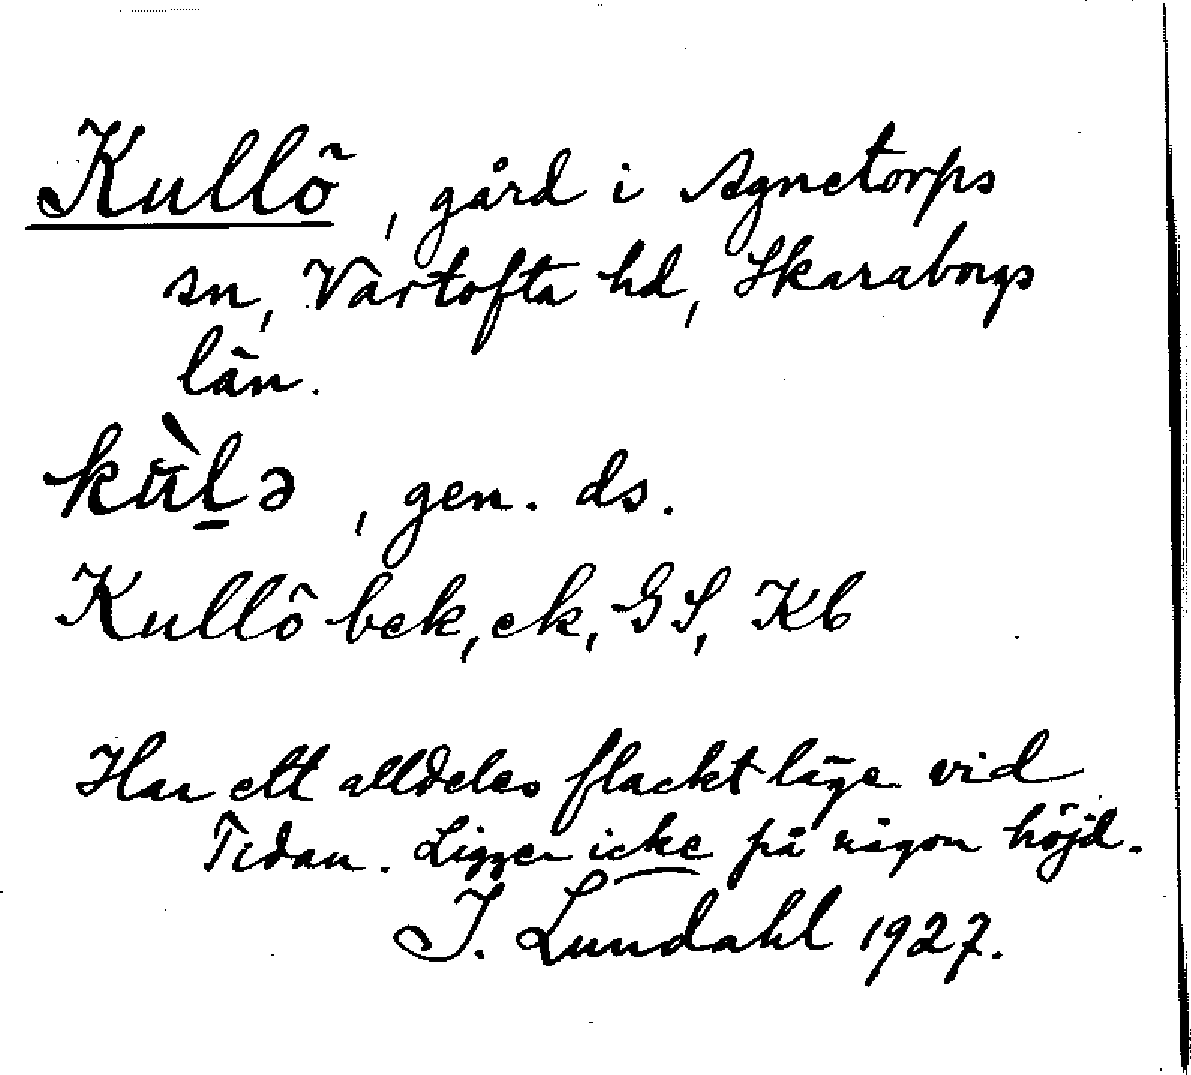 Kullö, gård i Agnetorps
sn, Vartofta hd, Skaraborgs
län.
kùl̠ə, gen. ds.
Kullö bek, ek, GS, Kb
Har ett alldeles flackt läge vid
Tidan. Ligger icke på någon höjd.
I. Lundahl 1927.